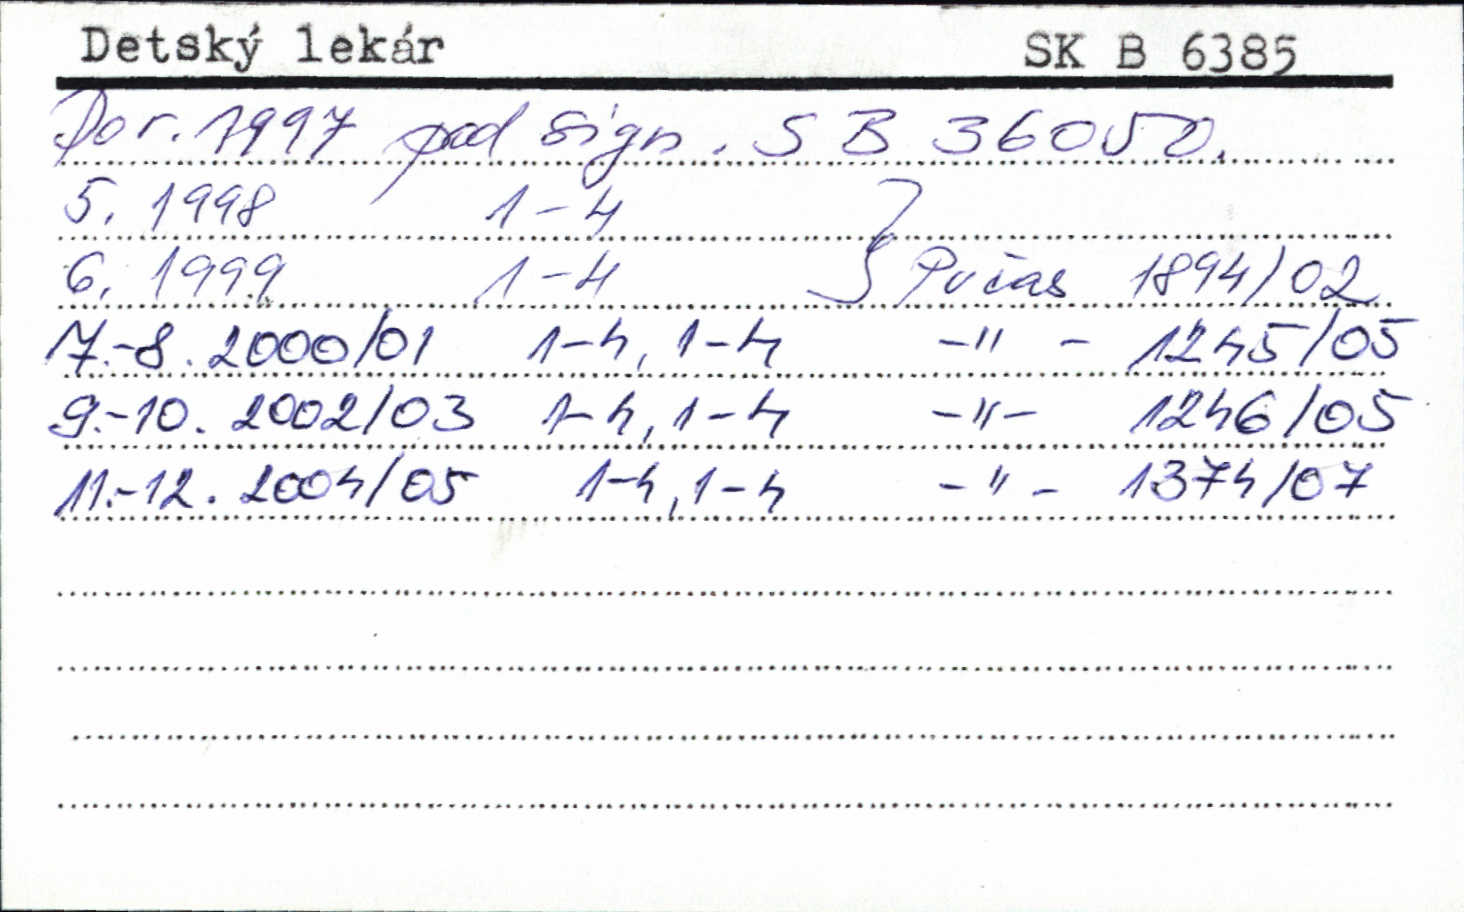 Detský lekár SK B 6385
Do r. 1997 pod sign. SB 36050.
5. 1998 1-4 }
6. 1999 1-4 } Pvčas 1894/02
7.-8. 2000/01 1-4, 1-4 -"- 1245/05
9.-10. 2002/03 1-4, 1-4 -"- 1246/05
11.-12. 2004/05 1-4, 1-4 -"- 1374/07